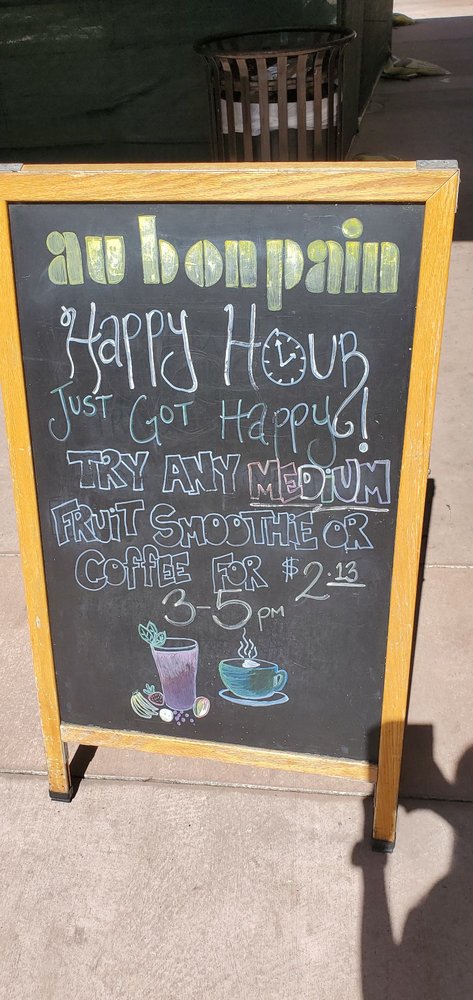 au bon pain
Happy Hour
Just Got Happy!
TRY ANY MEDiUM
FRUiT SMOOTHiE OR
COFFEE FOR $2.13
3-5pm